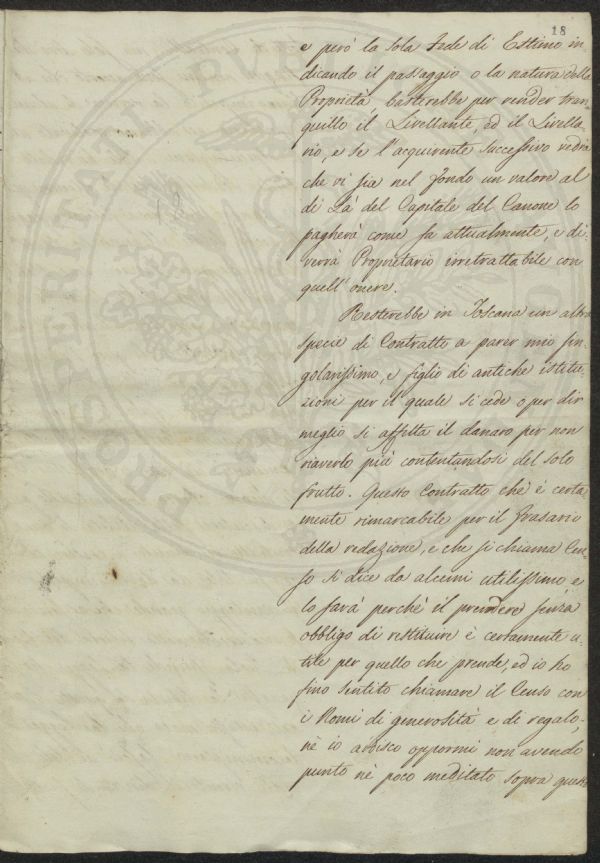 18
e però la sola Fede di Estimo in
dicando il passaggio o la natura della
Proprietà, basterebbe per render tran
quillo il Livellante, ed il Livella
rio, e se l'acquirente Successivo vedrà
che vi sia nel fondo un valore al
di Là del Capitale del Canone lo
pagherà come fa attualmente, e di
verrà Proprietario irretrattabile con
quell'onere.
Resterebbe in Toscana un altra
specie di Contratto a parer mio sin
golarissimo, e figlio di antiche istitu
zioni per il quale si cede o per dir
meglio si affitta il danaro per non
riaverlo più contentandosi del solo
frutto. Questo Contratto che è certa
mente rimarcabile per il frasario
della redazione, e che si chiama Cen
so si dice da alcuni utilissimo e
lo sarà perchè il prendere senza
obbligo di restituire è certamente u=
tile per quello che prende, ed io ho
fino sentito chiamare il Censo con
i Nomi di generosità e di regalo,
nè io ardisco oppormi non avendo
punto nè poco meditato sopra questo
PROSPERITATI PUBL